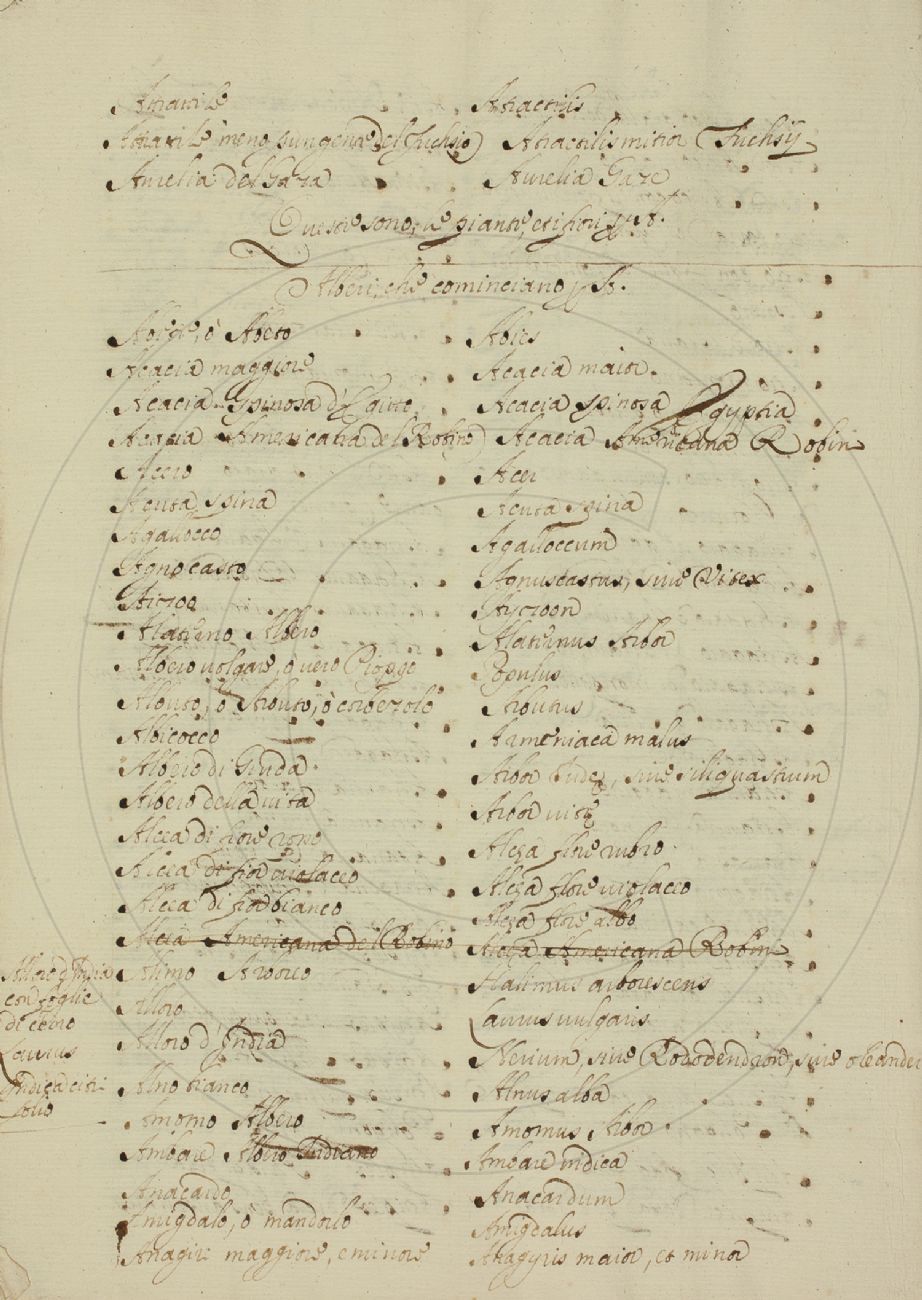 Attratile Atractilis
Attratile meno pungente del Fuchsio Atractilis mitior Fuchsij
Aurelia del Gaza Aurelia Gaze
Queste sono, le piante, et i fiori p A.
Alberi, che cominciano p A.
Abete, ò Abeto Abies
Acacia maggiore Acacia maior.
Acacia Spinosa d'Egitto Acacia spinosa Egyptia
Acacia Americana del Robino Acacia Americana Robin
Acero Acer
Acuta spina Acuta spina
Agallocco Agalloccum
Agnocasto Agnuscastus, sive Vitex
Aiczoo Ayczoon
Alaterno Albero Alaternus Arbor
Albero volgare, o vero Pioppo Populus
Albuto, ò Arbuto, ò corbezolo Arbutus
Albicocco Armeniaca malus
Albero di Giuda Arbor Iudę, sive siliquastrum
Albero della vita Arbor vitę
Alcea di fiore roso Alcea flore rubro.
Alcea di fior violaceo Alcea flore violaceo
Alcea di fior bianco Alcea flore albo
Alcea Americana del Robino Alcea Americana Robin
Alimo Arboreo Halimus arborescens
Alloro d'India
con foglie
di cedro
Laurus
Indica citri
folio
Alloro Laurus vulgaris
Alloro d'India Nerium, sive Rododendron, sive oleander
Alno bianco Alnus alba
Amomo Albero Amomus Arbor
Ambare Albero Indiano Ambare indica
Anacardo Anacardum
Amigdalo, ò mandorlo Amigdalus
Anagiri maggiore, e minore Anagyris maior, et minor